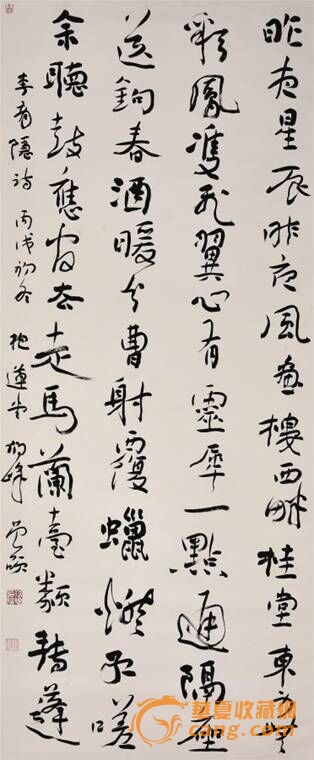 昨夜星辰昨夜風畫樓西畔桂堂東身無
彩鳳雙飛翼心有靈犀一點通隔座
送鉤春酒暖分曹射覆蠟燈紅嗟
余聽鼓應官去走馬蘭臺類轉蓬
李商隱詩 丙戌初冬 抱蓮堂
華夏收藏網
cang.com